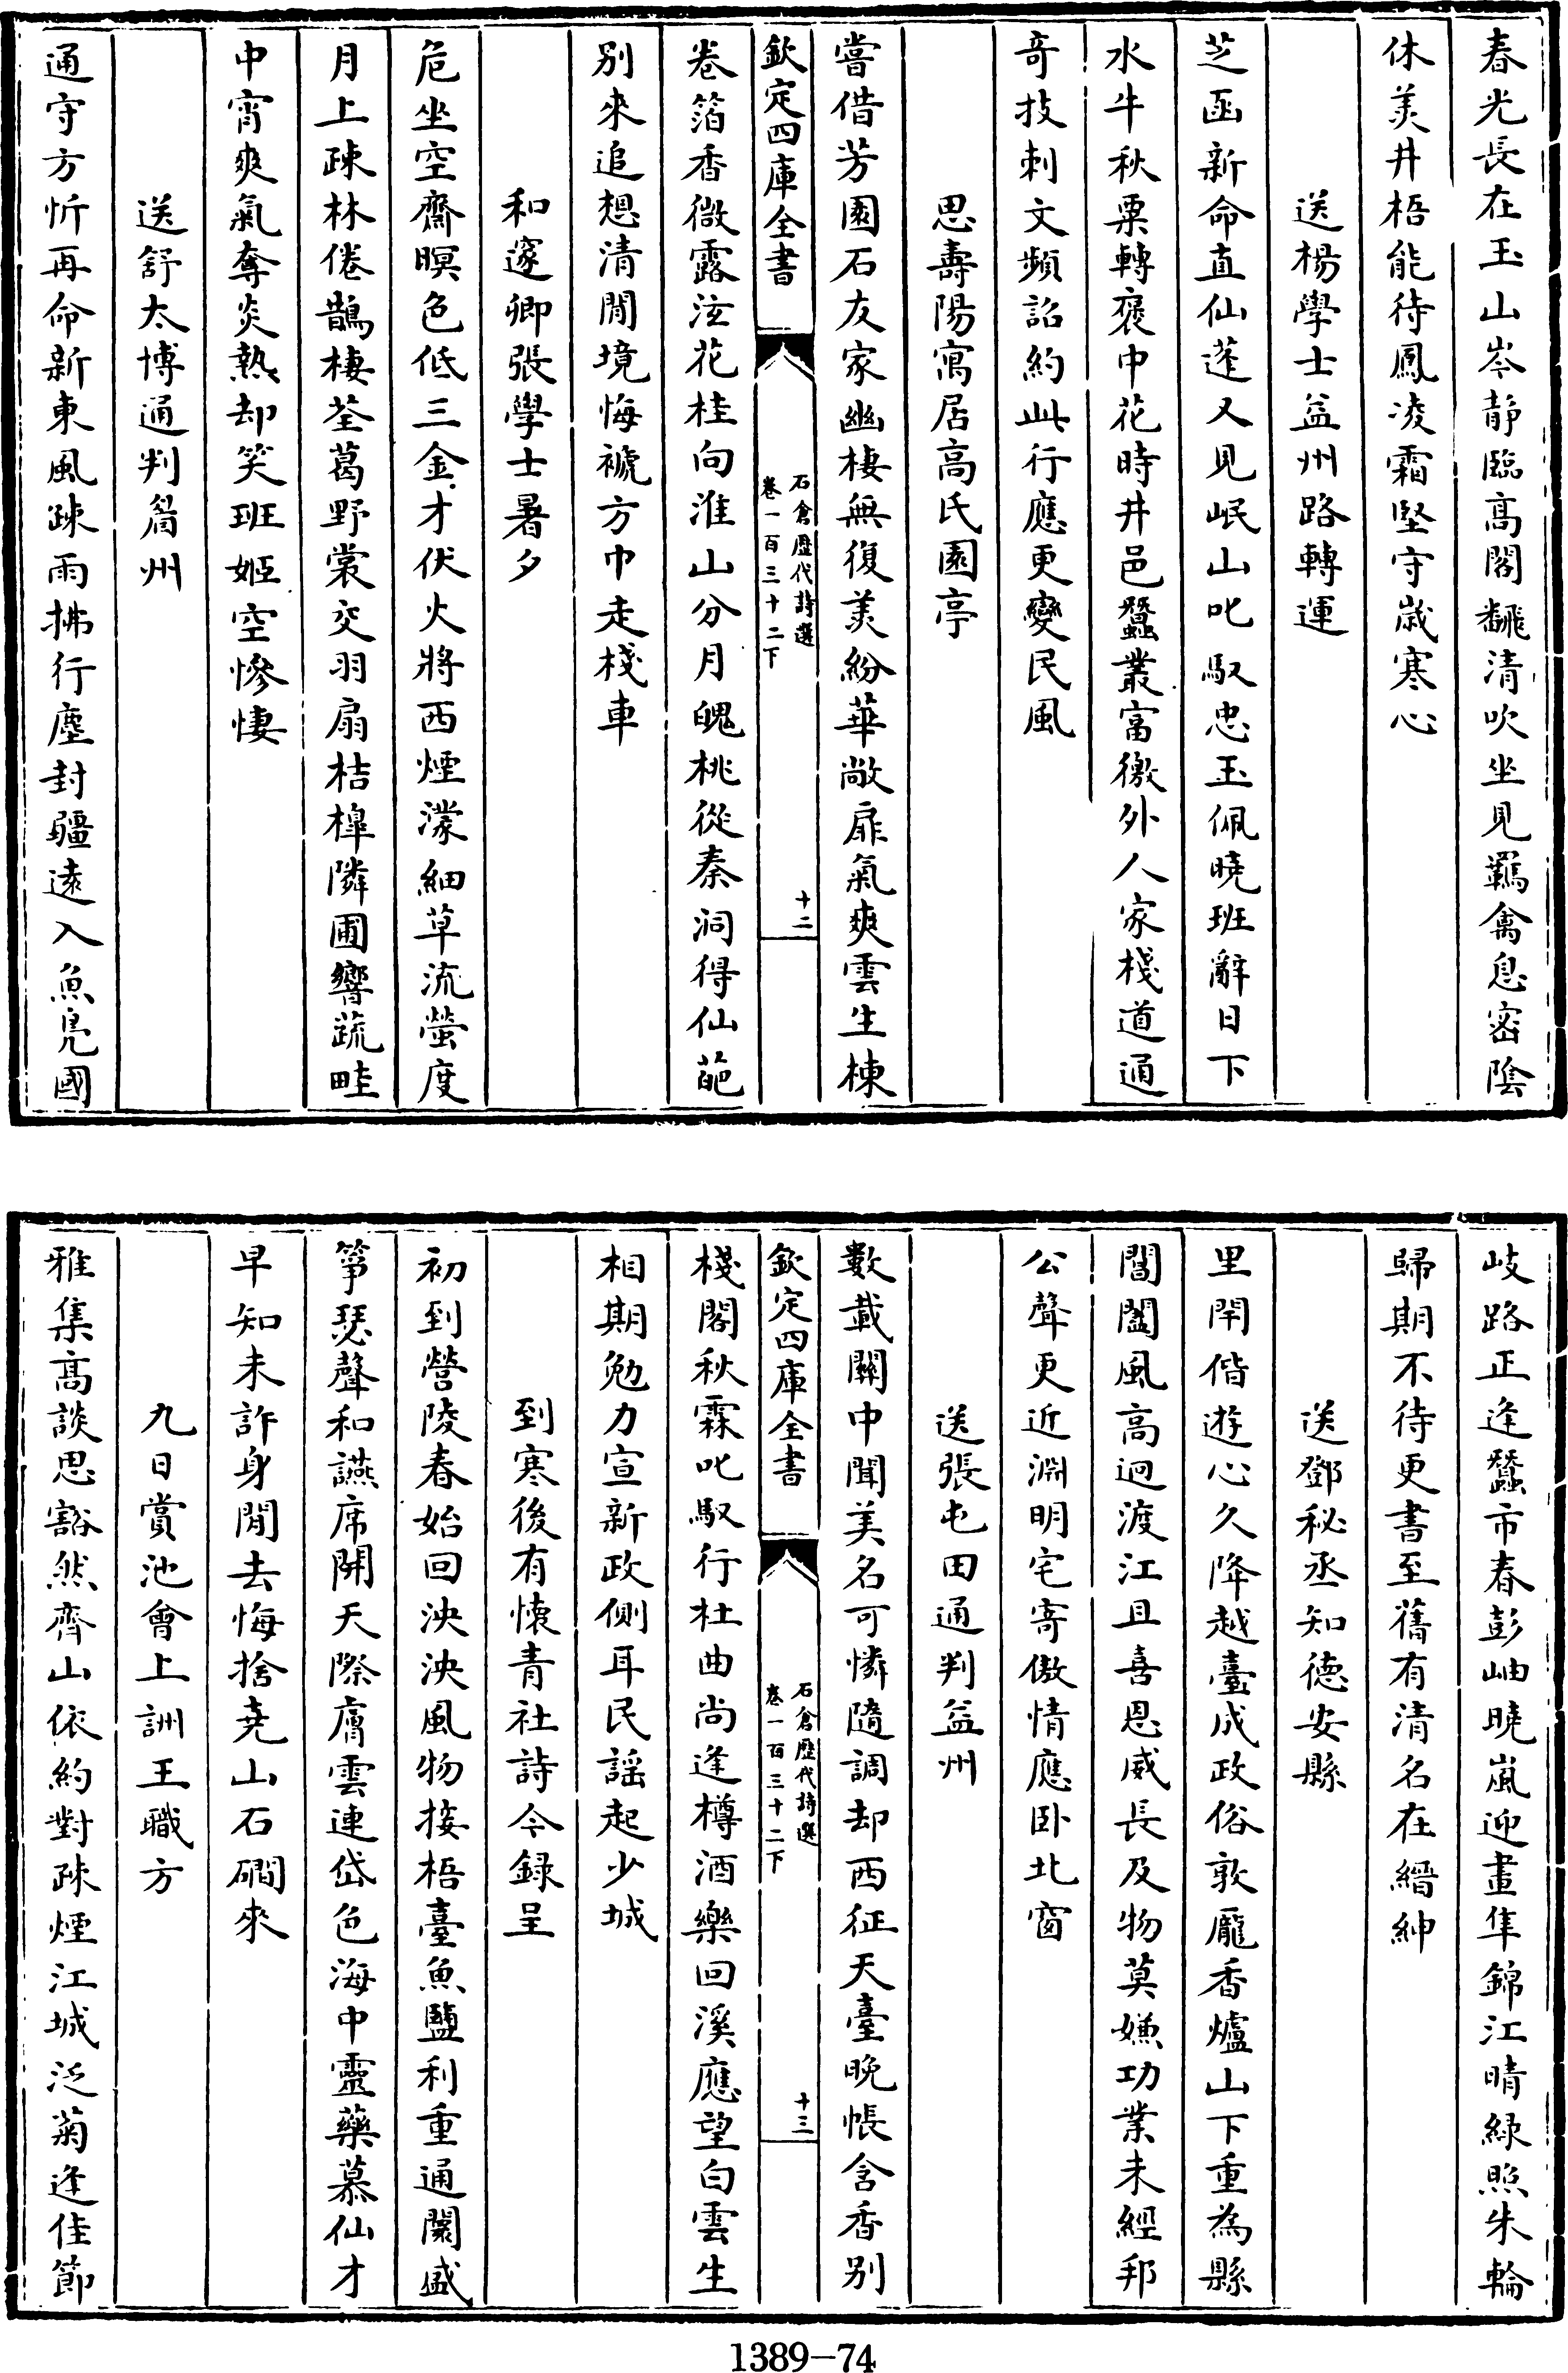 春光長在玉山岑靜臨高閣飜清吹坐見羈禽息密陰
休羨井梧能待鳳凌霜堅守歲寒心
送楊學士益州路轉運
芝函新命直仙蓬又見岷山叱馭忠玉佩曉班辭日下
水牛秋粟轉褒中花時井邑蠶叢富徼外人家棧道通
奇技刺文頻詔約此行應更變民風
思壽陽寓居高氏園亭
嘗借芳園石友家幽棲無復羨紛華敞扉氣爽雲生棟
欽定四庫全書
石倉歷代詩選
卷一百三十二下
十二
卷箔香微露泫花桂向淮山分月魄桃從秦洞得仙葩
別來追想清閒境悔褫方巾走棧車
和邃卿張學士暑夕
危坐空齋暝色低三金才伏火將西煙濛細草流螢度
月上疎林倦鵲棲荃葛野裳交羽扇桔橰隣圃響蔬畦
中宵爽氣奪炎熱却笑班姬空慘悽
送舒太博通判眉州
通守方忻再命新東風疎雨拂行塵封疆遠入魚鳧國
岐路正逢蠶市春彭岫曉嵐迎畫隼錦江晴緑照朱輪
歸期不待更書至舊有清名在縉紳
送鄧秘丞知德安縣
里閈偕遊心久降越臺成政俗敦龐香爐山下重為縣
閶闔風高迥渡江且喜恩威長及物莫嫌功業未經邦
公聲更近淵明宅寄傲情應卧北窗
送張屯田通判益州
數載關中聞美名可憐隨調却西征天臺晚帳含香別
欽定四庫全書
石倉歷代詩選
卷一百三十二下
十三
棧閣秋霖叱馭行杜曲尚逢樽酒樂回溪應望白雲生
相期勉力宣新政側耳民謡起少城
到寒後有懷青社詩今録呈
初到營陵春始回泱泱風物接梧臺魚鹽利重通闤盛
箏瑟聲和讌席開天際膚雲連岱色海中靈藥慕仙才
早知未許身閒去悔捨堯山石磵來
九日賞池會上詶王職方
雅集高談思豁然齊山依約對疎煙江城泛菊逢佳節
1389-74